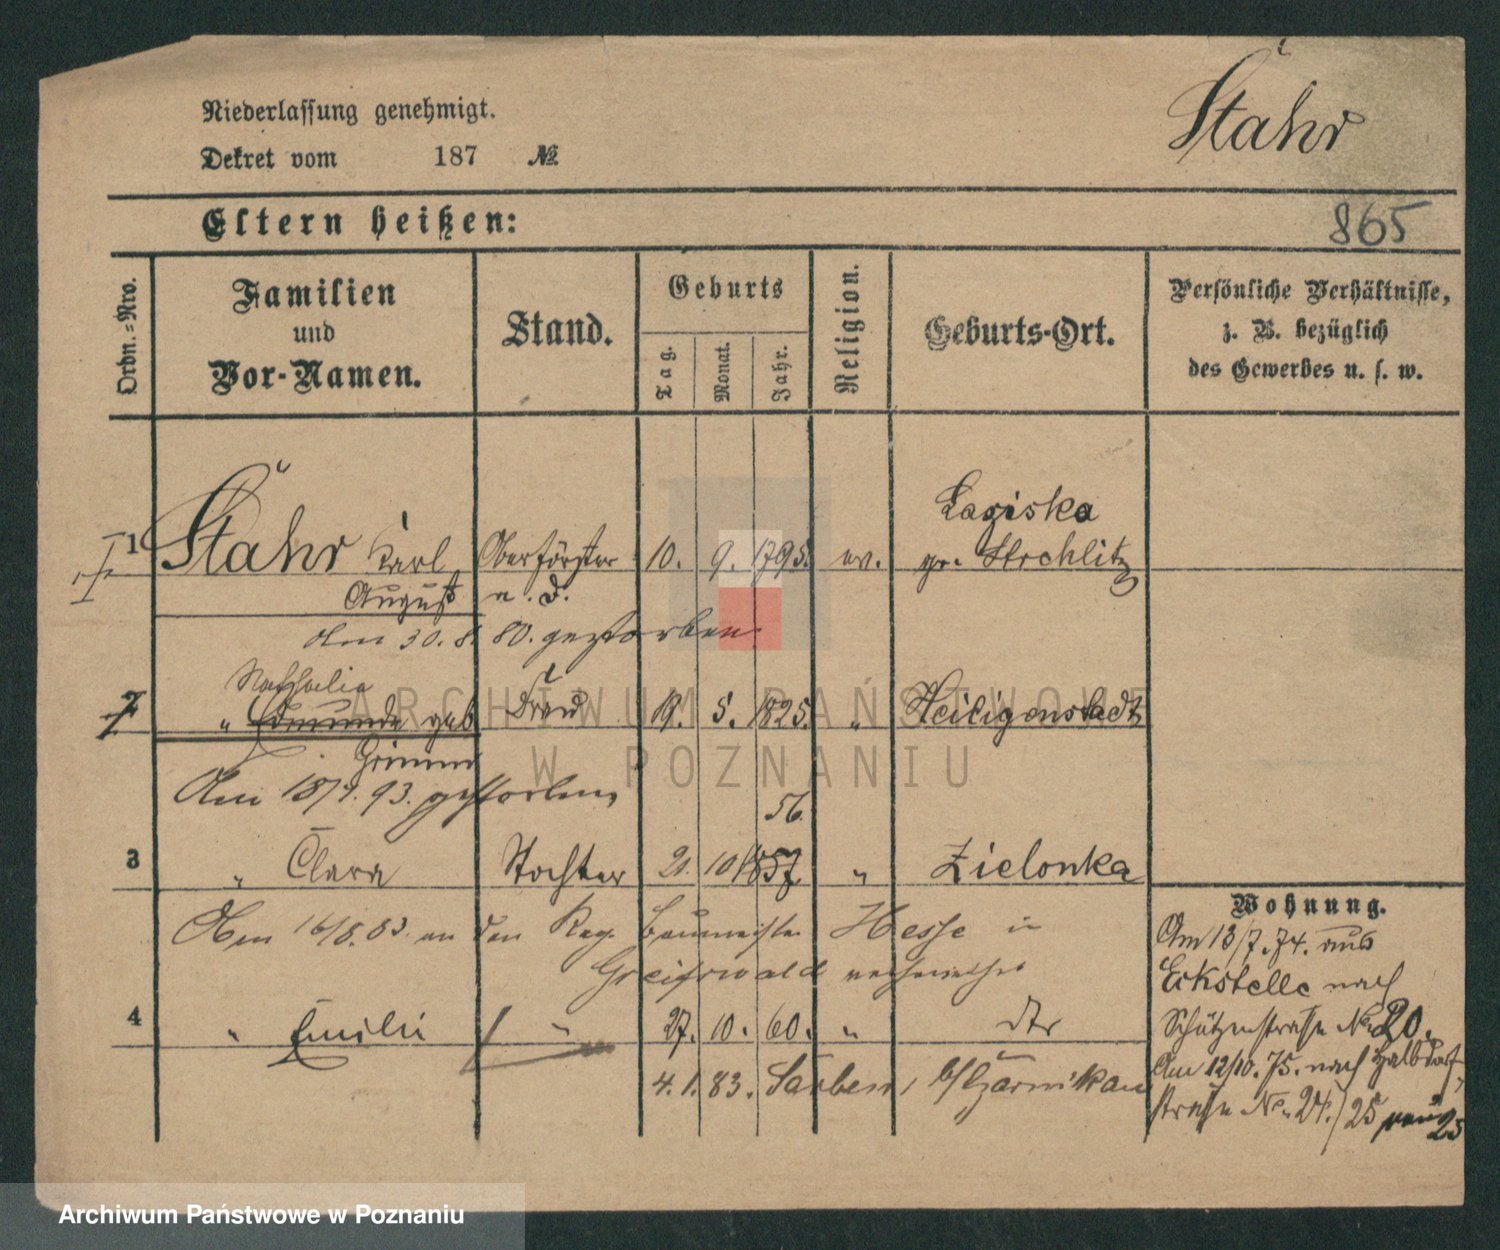 Stahr
Niederlassung genehmigt.
Dekret vom 187 №
Eltern heißen:
865
Ordn.=Nro.
Familien
und
Vor-Namen.
Stand.
Geburts
Tag.
Monat.
Jahr.
Religion.
Geburts-Ort.
Persönliche Verhältnisse,
z. B. bezüglich
des Gewerbes u. s. w.
Laziska
1 Stahr Karl Oberförster 10. 9. 1795. ev. gr. Strehlitz
August a. D.
den 30. 8. 80. gestorben
Nathalie
" Edmunde geb Frau 5. 1825. " Heiligenstadt
Grimm
Am 18/9. 93. gestorben
56.
3 " Clara Tochter 21. 10 1857 " Zielonka
Am 16/8. 83. an den Reg. Baumeister Hesse in
Greifswald verheirathet
4 " Emilie " 27. 10. 60. " dto
4. 1. 83. Sarben, b/Czarnikau
Wohnung.
Am 13/7. 74. aus
Eckstelle nach
Schützenstraße No 20.
Am 12/10. 75. nach Halbdorf
straße No. 24./25
25
ARCHIWUM PAŃSTWOWE
W POZNANIU
Archiwum Państwowe w Poznaniu